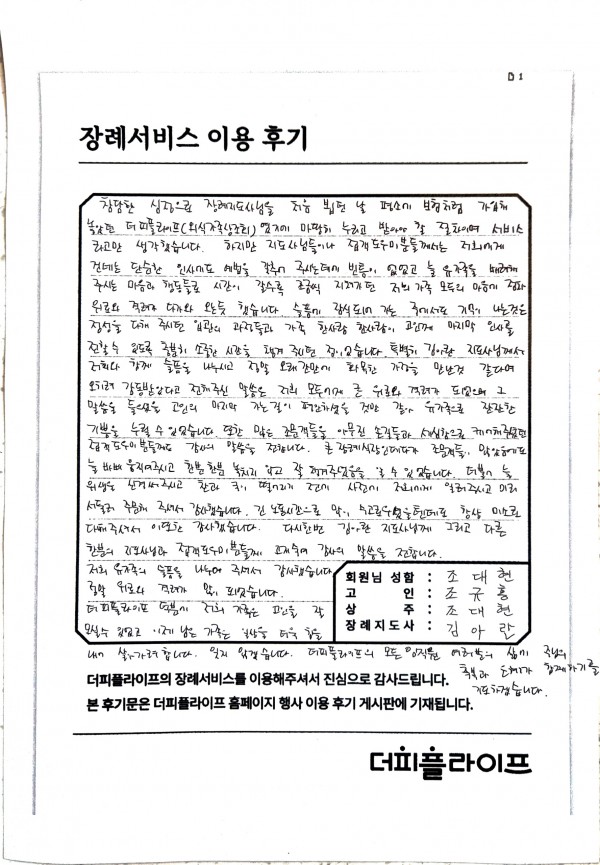 D 1
장례서비스 이용 후기
참담한 심정으로 장례지도사님을 처음 뵙던 날 평소에 보험처럼 가입해
놓았던 더피플라이프 였기에 마땅히 누리고 받아야 할 절차이며 서비스
라고만 생각했습니다. 하지만 지도사님들이나 접객도우미분들께서는 저희에게
건네는 단순한 인사에도 예법을 갖추어 주시는데에 빈틈이 없었고 늘 유가족을 배려해
주시는 마음과 행동들로 시간이 갈수록 조금씩 지쳐가던 저희 가족 모두의 마음에
위로와 격려가 다가와 오는듯 했습니다. 슬픔에 잠식되어 가는 중에서도 기억이 나는것은
정성을 다해 주시던 입관의 과정들과 가족 한사람 한사람이 고인께 마지막 인사를
전할수 있도록 충분히 소중한 시간을 챙겨 주시던 점이었습니다. 특별히 김아란 지도사님께서
저희와 함께 슬픔을 나누시고 정말 오래간만에 화목한 가정을 만난것 같다며
오히려 감동받았다고 전해주신 말씀은 저희 모두에게 큰 위로와 격려가 되었으며 그
말씀을 들으셨을 고인의 마지막 가는길이 평안하셨을 것만 같아 유가족으로 잔잔한
기쁨을 누릴 수 있었습니다. 또한 많은 조문객들을 야무진 손길들과 세심함으로 케어해주셨던
접객도우미분들께도 감사의 말씀을 전합니다. 큰 장례식장인데다가 조문객들이 많았음에도
늘 바삐 움직여주시고 한분한분 놓치지 않고 잘 챙겨주셨음을 알 수 있었습니다. 더불어 늘
위생을 신경써주시고 찬과 국이 떨어지기 전에 사전에 저희에게 알려주시고 미리
서둘러 주문해 주셔서 감사했습니다. 긴 노동시간으로 많이 수고로우셨을텐데도 항상 미소로
대해주셔서 이또한 감사했습니다. 다시한번 김아란 지도사님께 그리고 다른
한분의 지도사님과 접객도우미분들께 고개숙여 감사의 말씀을 전합니다.
저희 유가족의 슬픔을 나누어 주셔서 감사했습니다
정말 위로와 격려가 많이 되었습니다.
더피플라이프 덕분에 저희 가족은 고인을 잘
모실수 있었고 이제 남은 가족은 더욱 힘을
내어 살아가려 합니다. 잊지 않겠습니다. 더피플라이프의 모든 임직원 여러분의 삶에 주님의
축복과 은혜가 함께하기를
기도하겠습니다.
회원님 성함 : 조대현
고 인 : 조규홍
상 주 : 조대현
장례지도사 : 김아란
더피플라이프의 장례서비스를 이용해주셔서 진심으로 감사드립니다.
본 후기문은 더피플라이프 홈페이지 행사 이용 후기 게시판에 기재됩니다.
더피플라이프